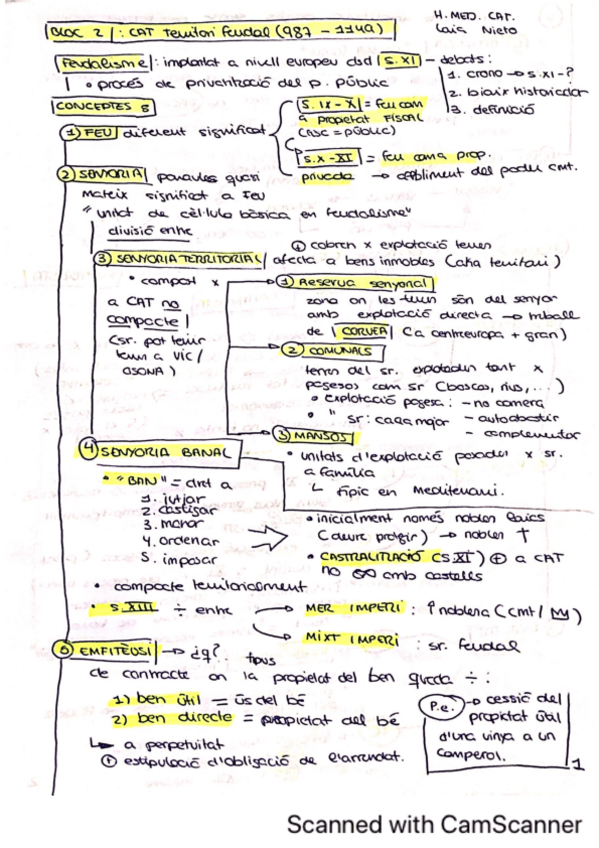 H. MED. CAT.
Laia Nieto
BLOC 2: CAT Territori Feudal (987 - 1149)
Feudalisme: implantat a nivell europeu dsd s. XI - debats:
procés de privatització del p. públic
1. crono → s.XI-?
2. biaix historiador
3. definició
CONCEPTES
1) FEU diferent significat
S. IX - X = feu com a propietat FISCAL (fisc = públic)
S.X - XI = feu com a prop. privada → afebliment del poder cmt.
2) SENYORIA paraules quasi
mateix significat a Feu
"unitat de cèl·lula bàsica en feudalisme"
divisió entre
3) SENYORIA TERRITORIAL afecta a bens inmobles (aka territori)
⊕ cobren x explotació terres
• compost x
a CAT no
compacte
(sr. pot tenir
terra a VIC /
OSONA)
1) Reserva senyorial
zona on les terres són del senyor
amb explotació directa → treball
de CORVEA (a centreuropa + gran)
2) COMUNALS
terres del sr. explotades tant x
pagesos com sr (boscos, rius, ...)
• explotació pagesa: - no comerç
• " sr: caça major - autoabastir
- complementar
3) MANSOS
• unitats d'explotació posades x sr.
a família
↳ típic en Mediterrani.
4) SENYORIA BANAL
• "BAN" = dret a
1. jutjar
2. castigar
3. manar
4. ordenar
5. imposar
• inicialment només nobles laics
(deure protegir) → nobles †
• CASTRALITZACIÓ (S.XI) ⊕ a CAT
no ∞ amb castells
• compacte territorialment
• S.XIII ÷ entre
MER IMPERI: ↑ noblesa (cmt/
MIXT IMPERI: sr. feudal
5) EMFITEUSI → ¿q? tipus
de contracte on la propietat del ben queda ÷:
1) ben útil = ús del bé
2) ben directe = propietat del bé
↳ a perpetuitat
⊕ estipulació d'obligació de l'arrendat.
P.e. → cessió del
propietat útil
d'una vinya a un
camperol.
1
Scanned with CamScanner